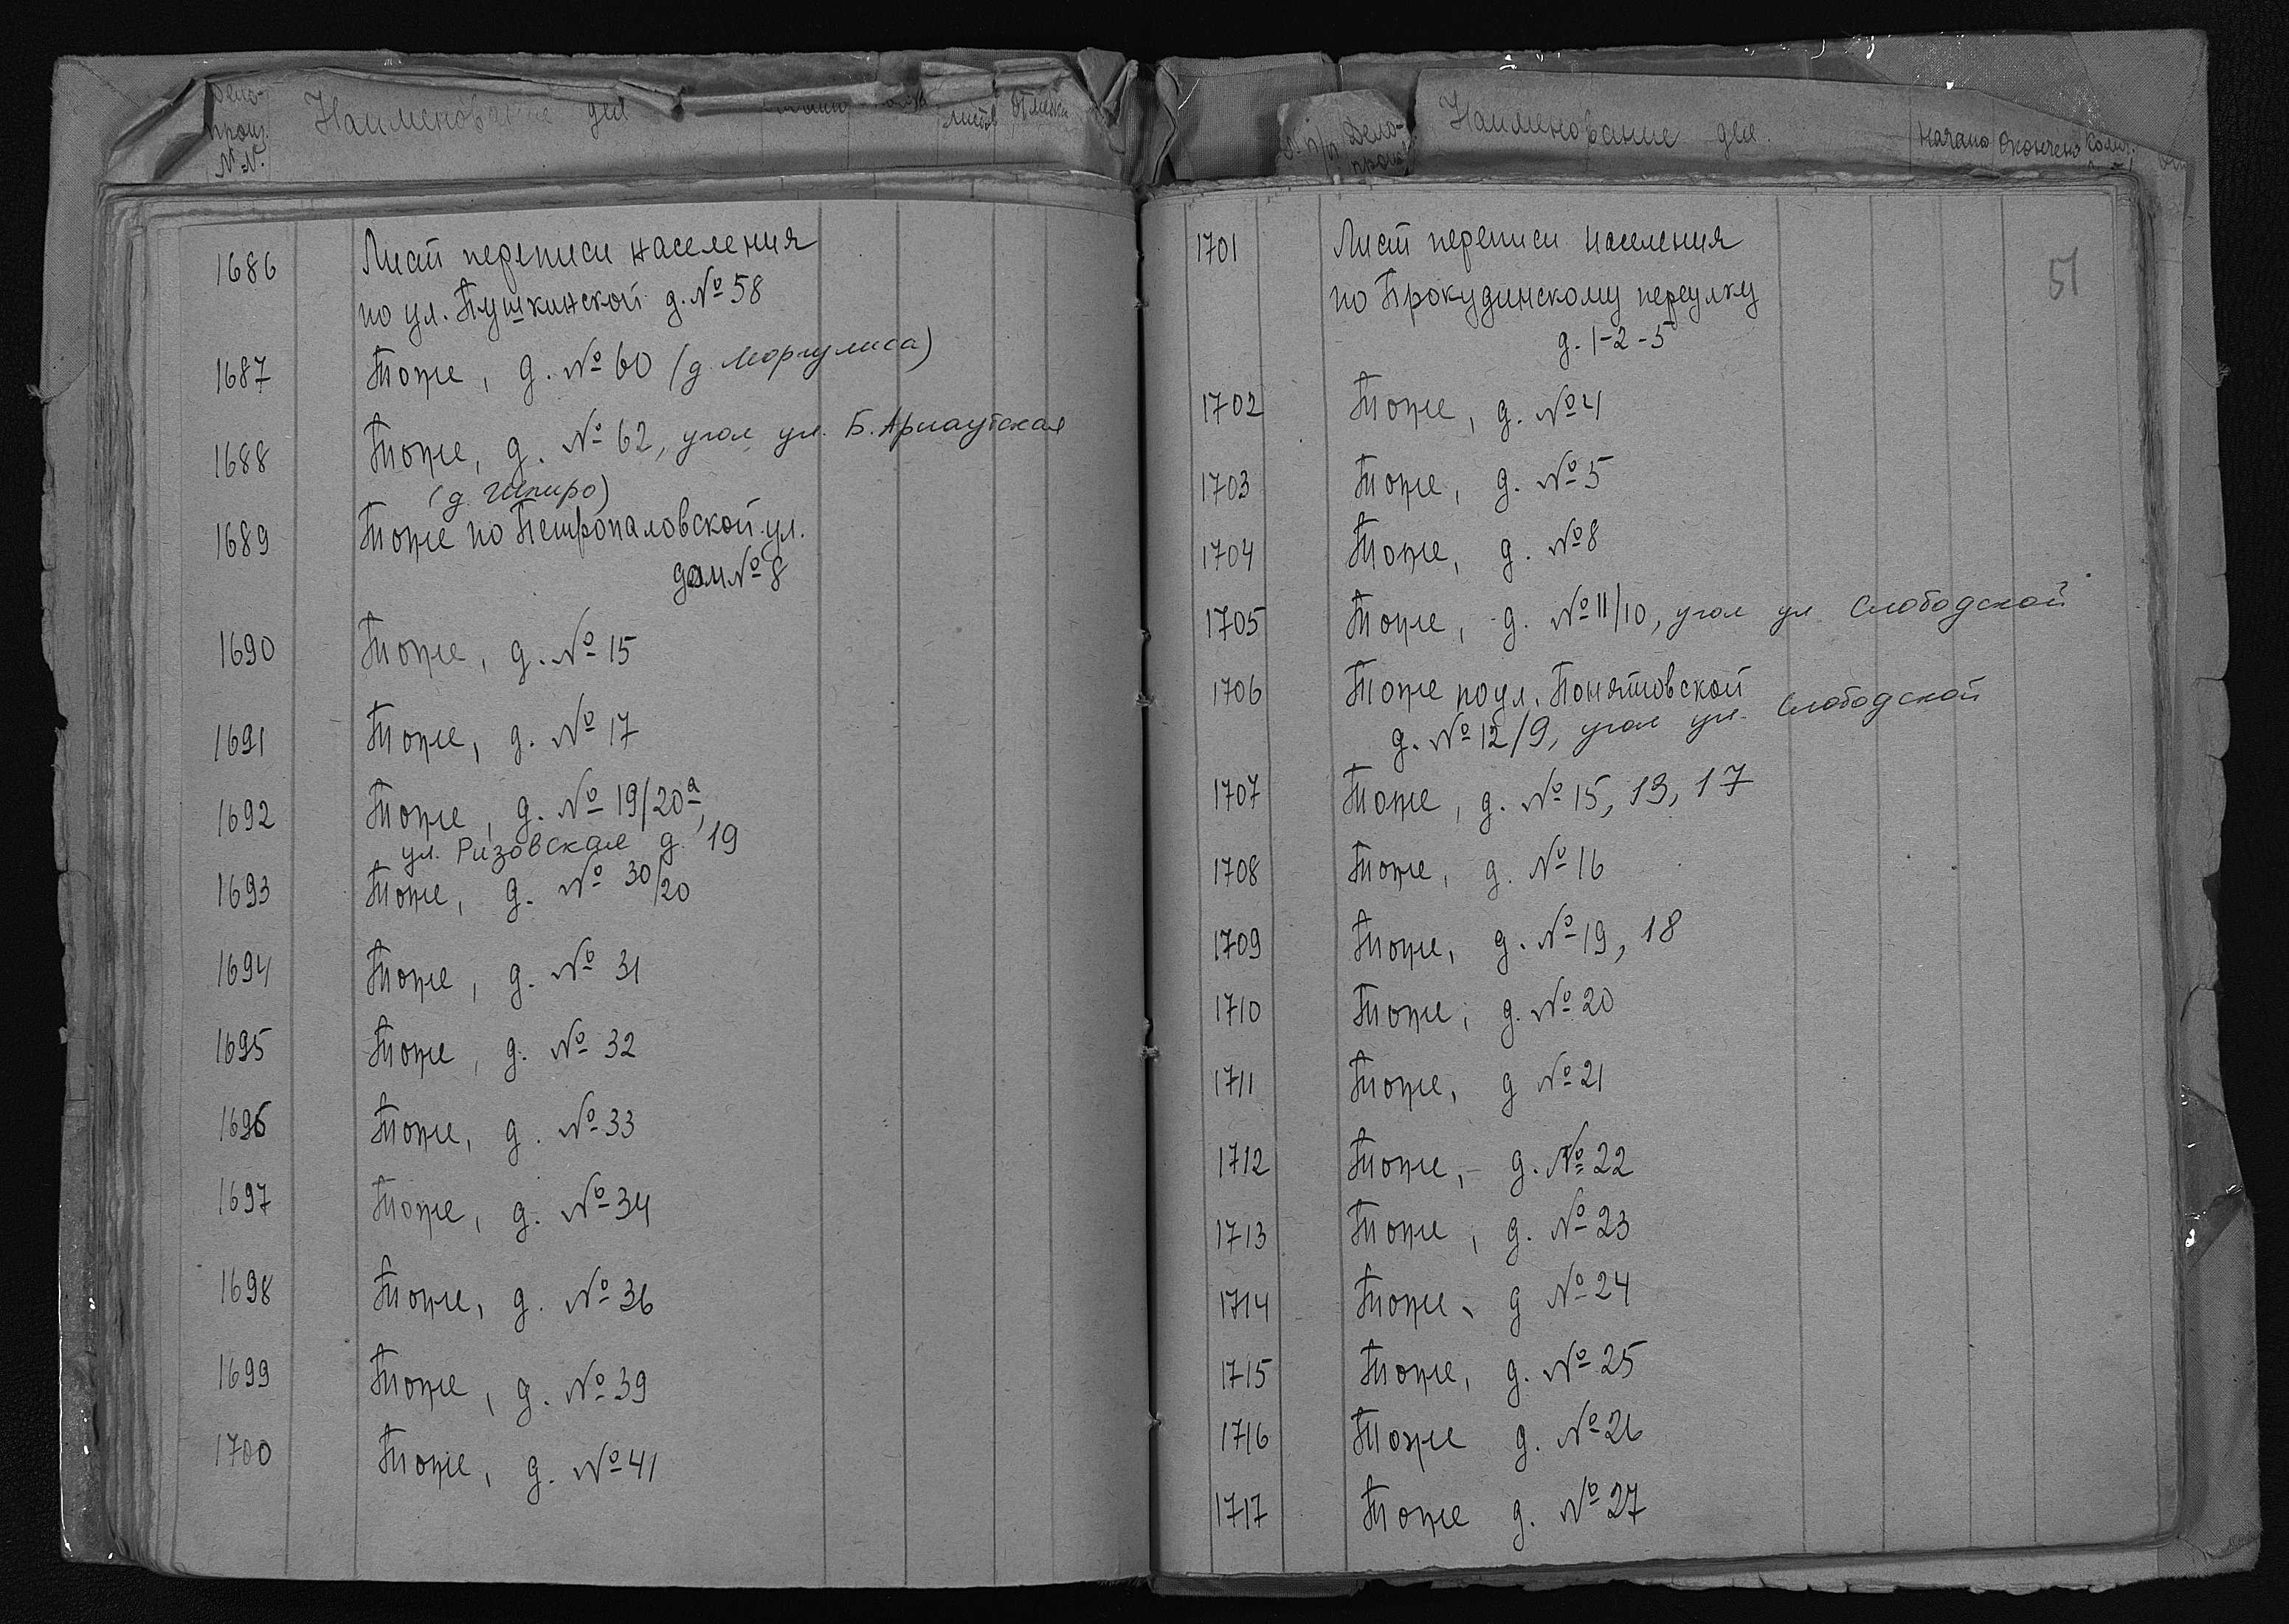 Дело-
произ.
№№.
Наименование дел
листов
Отметки
1686 Лист переписи населения
по ул. Пушкинской д. № 58
1687 Тоже, д. № 60 (д. Моргулиса)
1688 Тоже, д. № 62, угол ул. Б. Арнаутская
(д. Шпиро)
1689 Тоже по Петропаловской ул.
дом № 8
1690 Тоже, д. № 15
1691 Тоже, д. № 17
1692 Тоже, д. № 19/20а,
ул. Ризовская д. 19
1693 Тоже, д. № 30/20
1694 Тоже, д. № 31
1695 Тоже, д. № 32
1696 Тоже, д. № 33
1697 Тоже, д. № 34
1698 Тоже, д. № 36
1699 Тоже, д. № 39
1700 Тоже, д. № 41
№ п/п
Дело-
произ.
Наименование дел.
Начато
Окончено
Колич.
51
1701 Лист переписи населения
по Прокудинскому переулку
д. 1-2-5
1702 Тоже, д. № 4
1703 Тоже, д. № 5
1704 Тоже, д. № 8
1705 Тоже, д. № 11/10, угол ул Слободской
1706 Тоже по ул. Понятовской
д. № 12/9, угол ул. Слободской
1707 Тоже, д. № 15, 13, 17
1708 Тоже, д. № 16
1709 Тоже, д. № 19, 18
1710 Тоже, д. № 20
1711 Тоже, д № 21
1712 Тоже, д. № 22
1713 Тоже, д. № 23
1714 Тоже, д № 24
1715 Тоже, д. № 25
1716 Тоже д. № 26
1717 Тоже д. № 27